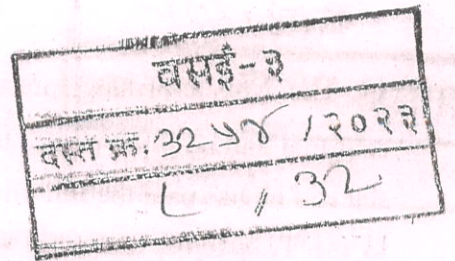 वसई-३
दस्त क्र. ३२५४ /२०२३
८ / ३२